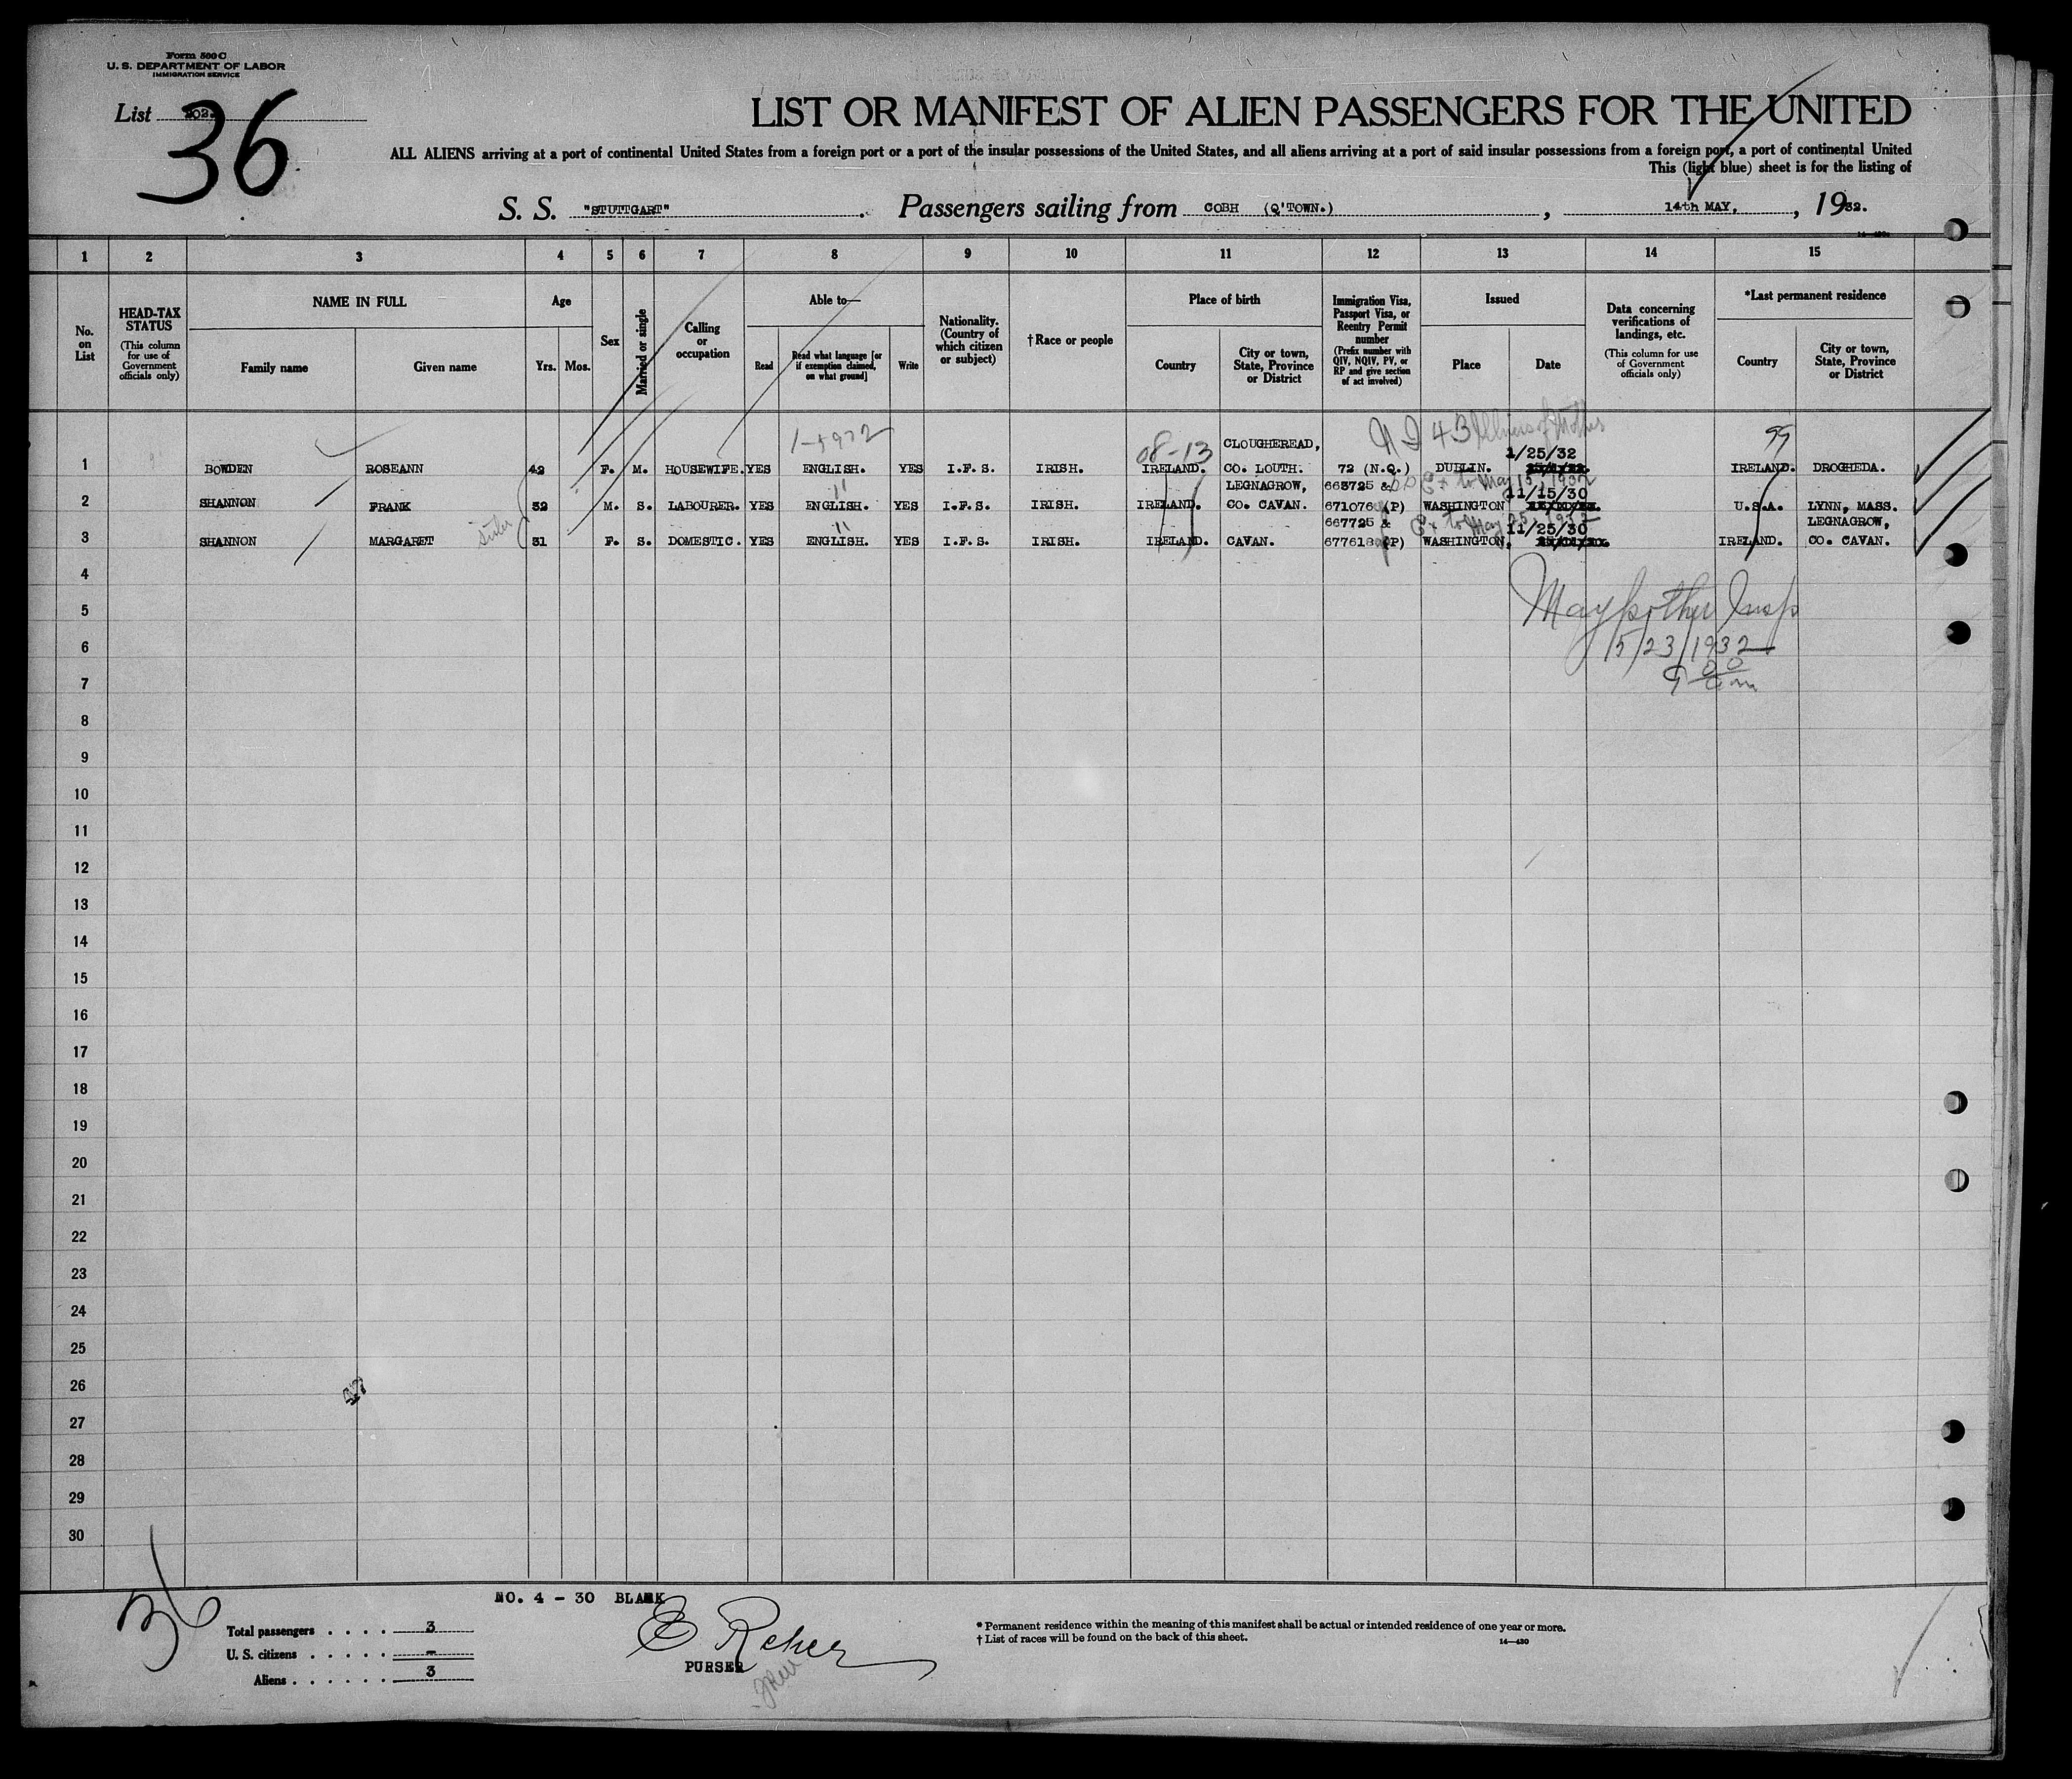 Form 500 C
U. S. DEPARTMENT OF LABOR
IMMIGRATION SERVICE
List 202
36
LIST OR MANIFEST OF ALIEN PASSENGERS FOR THE UNITED
ALL ALIENS arriving at a port of continental United States from a foreign port or a port of the insular possessions of the United States, and all aliens arriving at a port of said insular possessions from a foreign port, a port of continental United
This (light blue) sheet is for the listing of
S. S. "STUTTGART". Passengers sailing from COBH (Q'TOWN.), 14th MAY, , 1932.
1 2 3 4 5 6 7 8 9 10 11 12 13 14 15
No. on List
HEAD-TAX STATUS
(This column for use of Government officials only)
NAME IN FULL
Family name
Given name
Age
Yrs.
Mos.
Sex
Married or single
Calling or occupation
Able to—
Read
Read what language [or if exemption claimed, on what ground]
Write
Nationality. (Country of which citizen or subject)
†Race or people
Place of birth
Country
City or town, State, Province or District
Immigration Visa, Passport Visa, or Reentry Permit number
(Prefix number with QIV, NQIV, PV, or RP and give section of act involved)
Issued
Place
Date
Data concerning verifications of landings, etc.
(This column for use of Government officials only)
*Last permanent residence
Country
City or town, State, Province or District
08-13 CLOUGHEREAD, 4B Illness of Mother 99
1/25/32
1 BOWDEN ROSEANN 42 F. M. HOUSEWIFE. YES ENGLISH. YES I.F.S. IRISH. IRELAND. CO. LOUTH. 72 (N.Q.) DUBLIN. IRELAND. DROGHEDA.
LEGNAGROW, 663725 & Ex to May 15, 1932
11/15/30
2 SHANNON FRANK 32 M. S. LABOURER. YES ENGLISH. YES I.F.S. IRISH. IRELAND. CO. CAVAN. 671076 (P) WASHINGTON U.S.A. LYNN, MASS.
667725 & Ex to May 25, 1932 LEGNAGROW,
11/25/30
3 SHANNON MARGARET sister 31 F. S. DOMESTIC. YES ENGLISH. YES I.F.S. IRISH. IRELAND. CAVAN. 677618 (P) WASHINGTON, IRELAND. CO. CAVAN.
4
5
6
5/23/1932
7
8
9
10
11
12
13
14
15
16
17
18
19
20
21
22
23
24
25
26
27
28
29
30
NO. 4 - 30 BLANK
36
Total passengers . . . . 3
U. S. citizens . . . . . –
Aliens . . . . . . 3
E Reher
PURSER
* Permanent residence within the meaning of this manifest shall be actual or intended residence of one year or more.
† List of races will be found on the back of this sheet.
14—430